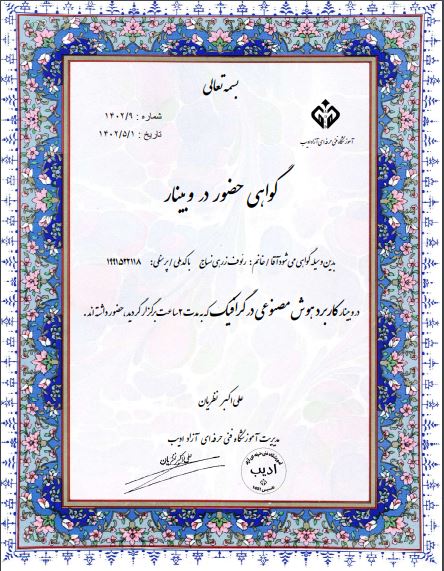 بسمه تعالی
شماره : ۱۴۰۲/۹
تاریخ : ۱۴۰۲/۵/۱
آموزشگاه فنی حرفه ای آزاد ادیب
گواهی حضور در وبینار
بدین وسیله گواهی می شود آقا/خانم : رئوف زرهی نساج باکد ملی/پرسنلی: ۱۹۹۱۵۳۲۱۱۸
در وبینار کاربرد هوش مصنوعی در گرافیک که به مدت ۲ ساعت برگزار گردید، حضور داشته اند.
علی اکبر نظریان
مدیریت آموزشگاه فنی حرفه ای آزاد ادیب
علی اکبر نظریان
ادیب